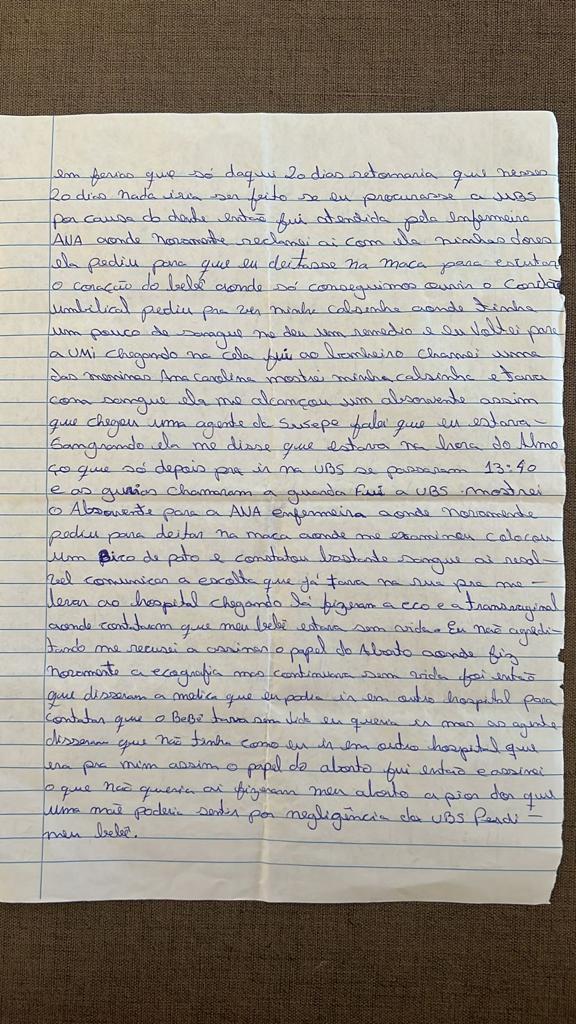 em ferias que só daqui 20 dias retornaria que nesses
20 dias nada iria ser feito se eu procurasse a UBS
por causa do dente então fui atendida pela Enfermeira
ANA aonde novamente reclamei ai com ela minhas dores
ela pediu para que eu deitasse na maca para escutar
o coração do bebê aonde só conseguimos ouvir o Cordão
umbilical pediu pra ver minha calsinha aonde tinha
um pouco de sangue me deu um remedio e eu Voltei para
a UMi chegando na cela fui ao banheiro chamei uma
das meninas Ana Carolina mostrei minha calsinha e tava
com sangue ela me alcançou um absorvente assim
que chegou uma agente da Susepe falei que eu estava-
Sangrando ela me disse que estava na hora do Almo
ço que só depois pra ir na UBS se passaram 13:40
e as gurias chamaram a guarda Fui a UBS mostrei
o Absorvente para a ANA enfermeira aonde novamente
pediu para deitar na maca aonde me examinou colocou
um Bico de pato e constatou bastante sangue ai resol-
vel comunicar a escolta que já tava na rua pra me -
levar ao hospital chegando lá fizeram a eco e a transvaginal
aonde contataram que meu bebê estava sem vida. Eu não agredi-
tando me recusei a assinar o papel do Aborto aonde fiz
novamente a ecografia mas continuava sem vida foi então
que disseram a medica que eu podia ir em outro hospital para
contatar que o BeBê tava sem vida eu queria ir mas as agente
disseram que não tinha como eu ir em outro hospital que
era pra mim assim o papel do aborto fui então e assinei
o que não queria ai fizeram meu aborto a pior dor que
uma mãe poderia sentir por negligência da UBS Perdi -
meu bebê.